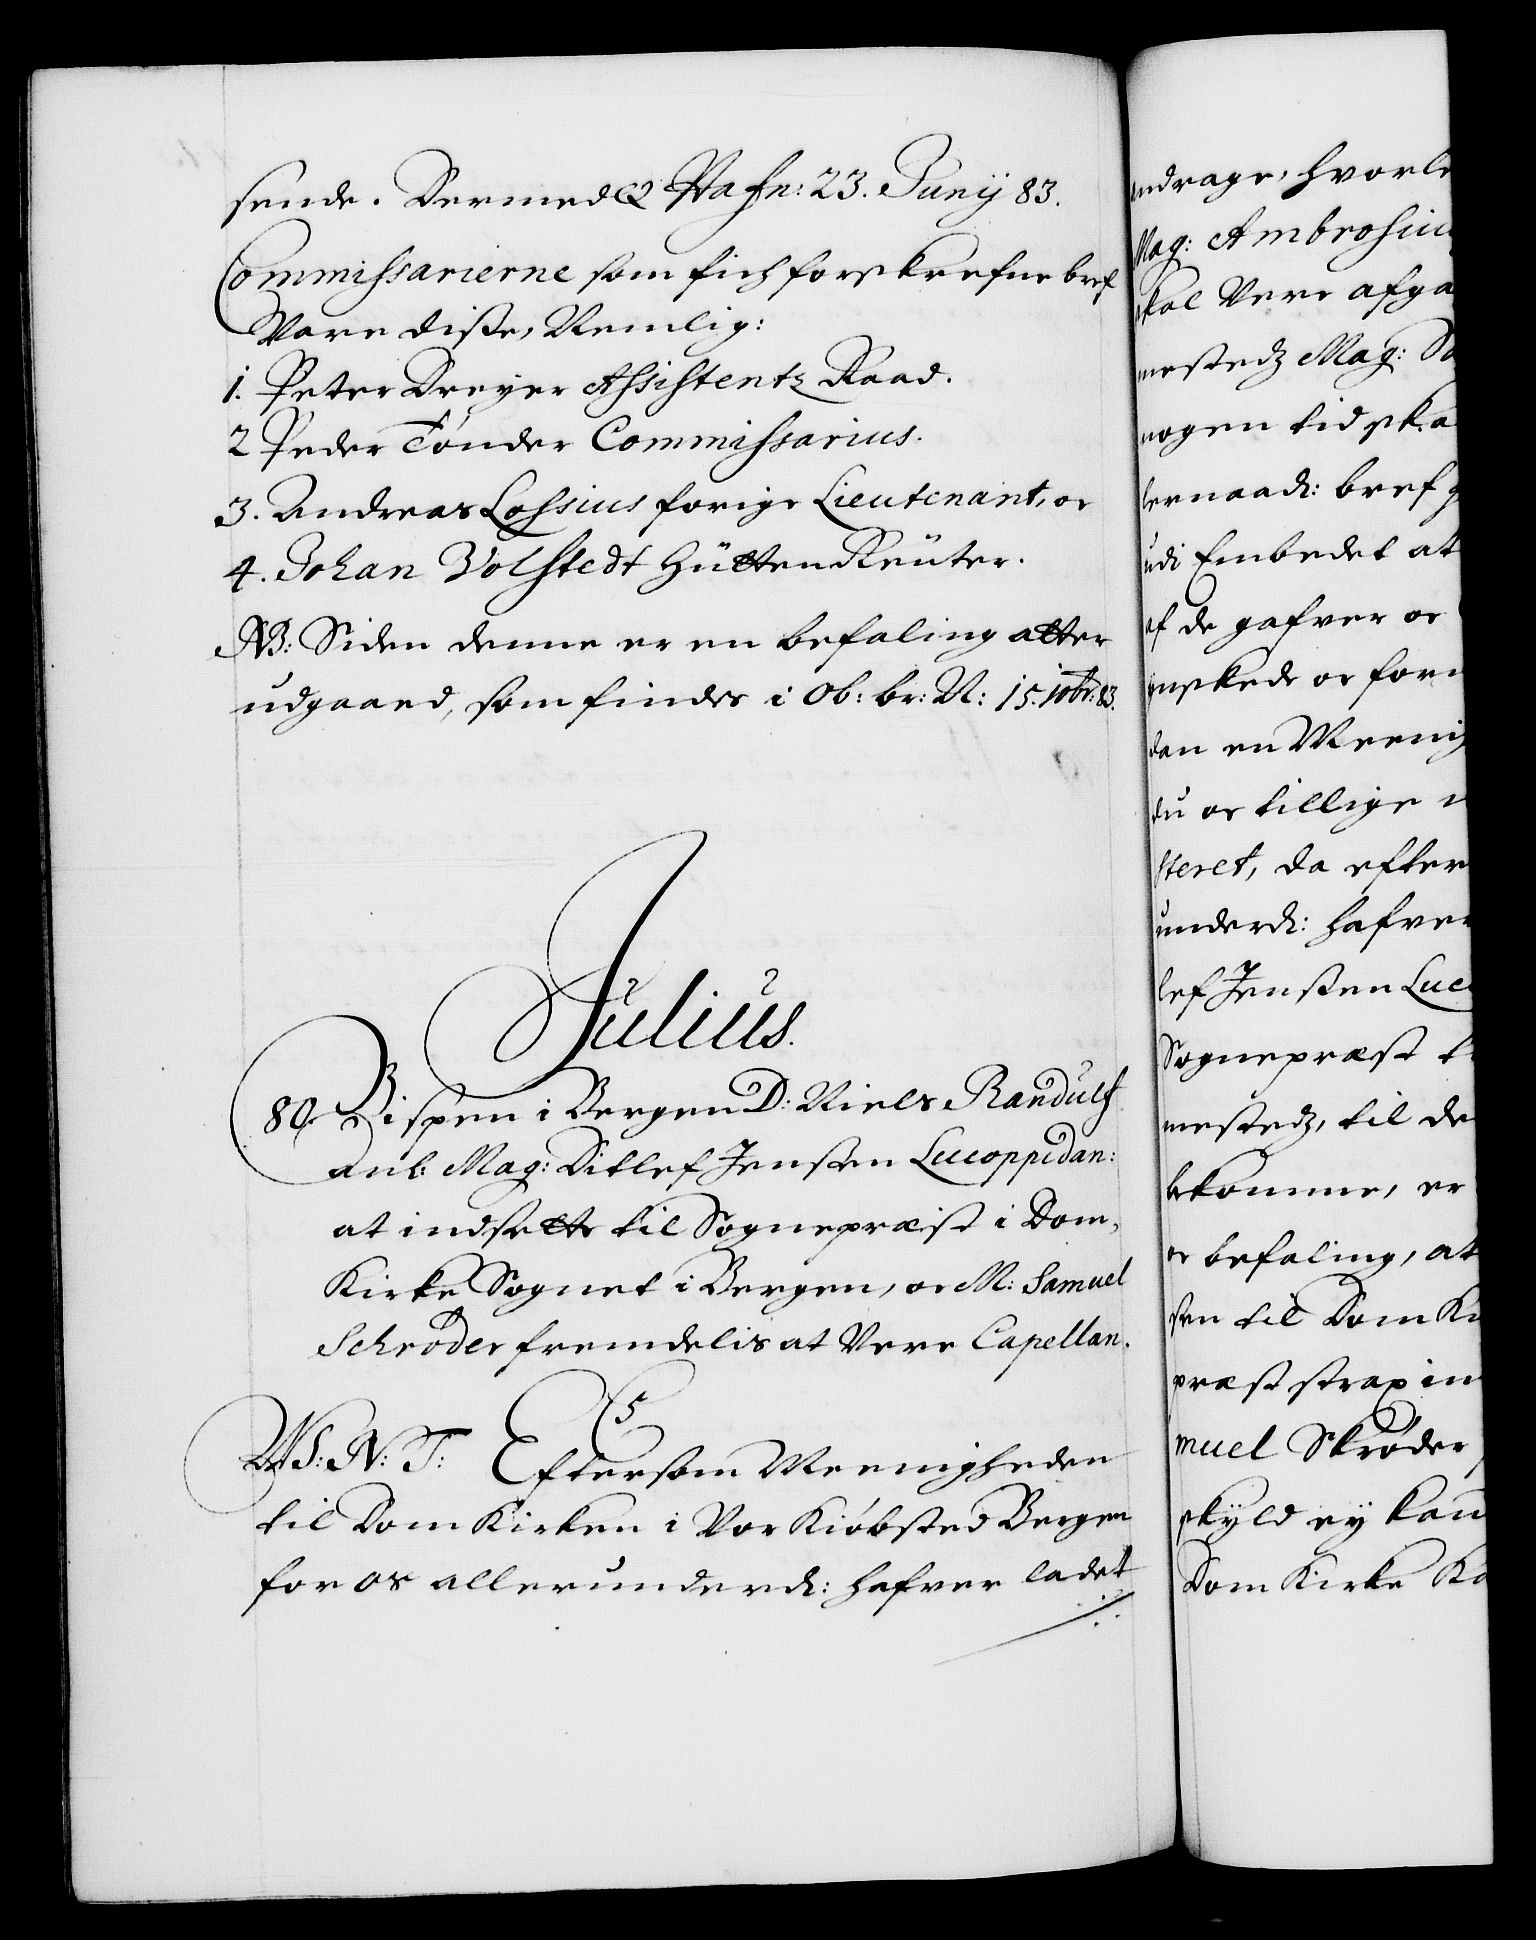 sende. Dermed &c Hafn: 23. Junij 83.
Commissarierne som fich forskrefne bref
Vare disse, Nemlig:
1. Peter Dreyer Assistentz Raad.
2 Peder Tønder Commissarius.
3. Andreas Lossius forige Lieutenant, oc
4. Johan Volstedt HüttenReüter.
NB: Siden denne er en befaling atter
udgaaed, som findes i Ob: br: N: 15. 10br: 83.
Julius.
80. Bispen i Bergen D: Niels Randulf
anl: Mag: Ditlef Jensen Lucoppidan:
at indsette til Sognepræst i Dom,
Kirke Sognet i Bergen, oc M: Samuel
Schrøder fremdelis at Vere Capellan.
C5
W S: N: T: Eftersom Meenigheden
til Dom Kirken i Vor Kiøbsted Bergen
for os allerunderd: hafver ladet
andrage, hvorle
Mag: Ambrosiu
skal Vere afga
mestedz Mag: Sa
nogen tid ska
lernaad: bref g
udi Embedet at
af de gafver oc
ønskede oc forn
dan en Meenig
du oc tillige
steret, da efter
underd: hafver
lef Jensen Luc
Sognepræst t
mestedz, til de
bekomme, er
oc befaling, at
sen til Dom Ki
præst strax in
muel Skrøder
skyld ey kan
Dom Kirke Ka